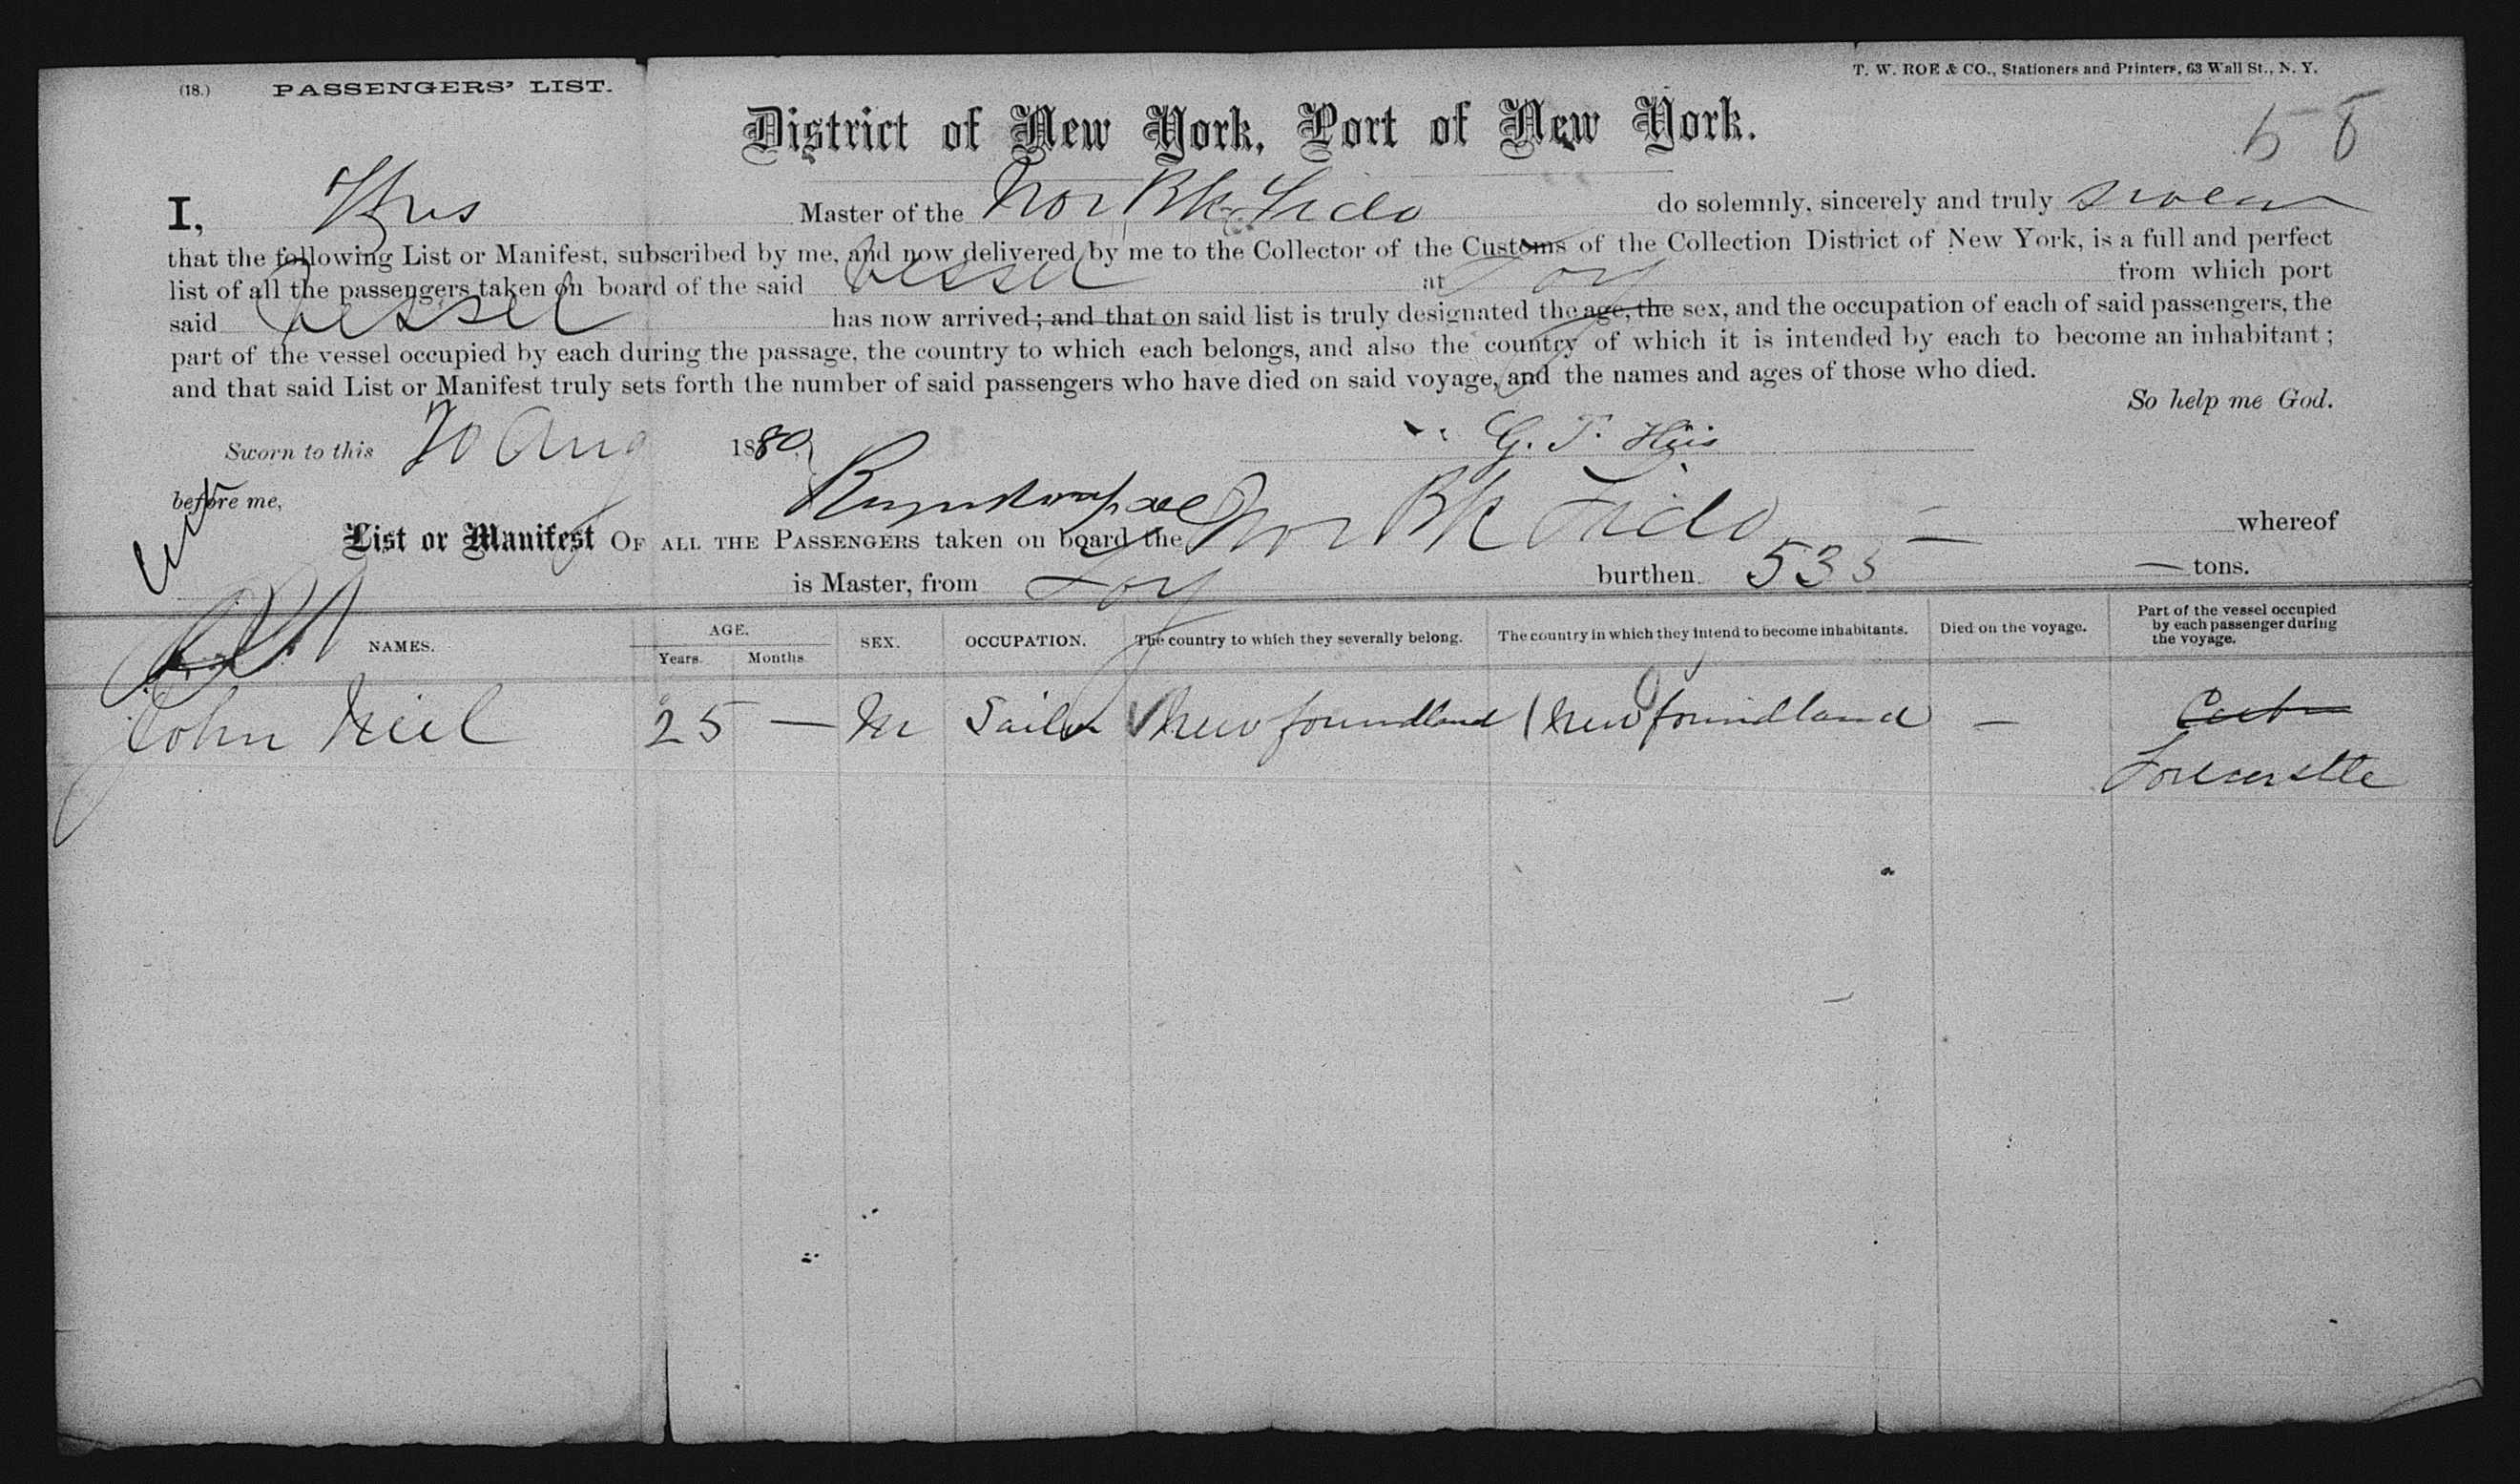 (18.) PASSENGERS' LIST.
T. W. ROE & CO., Stationers and Printers, 63 Wall St., N. Y.
District of New York, Port of New York.
I, Master of the Nor Bk Fido do solemnly, sincerely and truly swear
that the following List or Manifest, subscribed by me, and now delivered by me to the Collector of the Customs of the Collection District of New York, is a full and perfect
list of all the passengers taken on board of the said vessel at from which port
said vessel has now arrived; and that on said list is truly designated the age, the sex, and the occupation of each of said passengers, the
part of the vessel occupied by each during the passage, the country to which each belongs, and also the country of which it is intended by each to become an inhabitant;
and that said List or Manifest truly sets forth the number of said passengers who have died on said voyage, and the names and ages of those who died.
So help me God.
Sworn to this 20 Aug 1880 G. T.
before me,
List or Manifest OF ALL THE PASSENGERS taken on board the Nor Bk Fido — whereof
is Master, from burthen 535 — tons.
NAMES. AGE. Years. Months. SEX. OCCUPATION. The country to which they severally belong. The country in which they intend to become inhabitants. Died on the voyage. Part of the vessel occupied by each passenger during the voyage.
John Niel 25 — M Sailor Newfoundland Newfoundland —
Forecastle